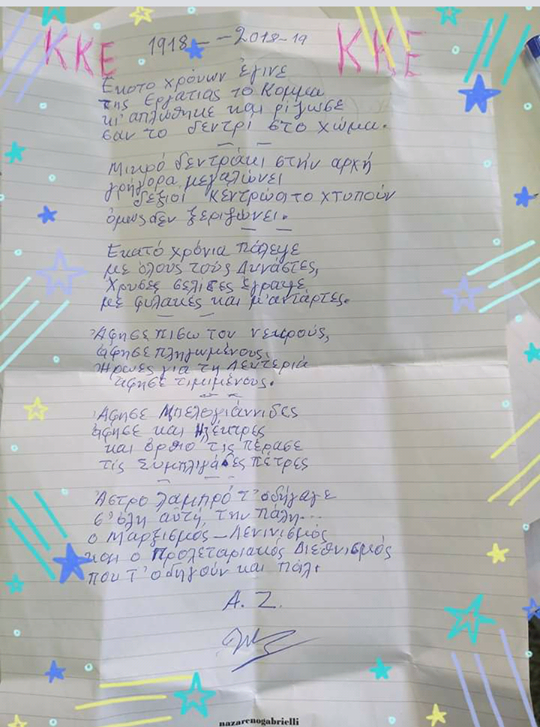 ΚΚΕ 1918 - - 2018-19 ΚΚΕ
Εκατο χρόνων έγινε
της Εργατιάς το Κομμα
κι' απλώθηκε και ρίζωσε
σαν το δεντρί στο χώμα.
Μικρό δεντράκι στην αρχή
γρήγορα μεγαλώνει
δεξιοί Κεντρώοι το χτυπούν
όμως δεν ξεριζώνει.
Εκατό χρόνια πάλεψε
με όλους τους Δυνάστες,
Χρυσές σελίδες έγραψε,
με φυλακές και μ'αντάρτες.
Άφησε πίσω του νεκρούς,
άφησε πληγωμένους,
Ήρωες για τη Λευτεριά
άφησε τιμιμένους.
Άφησε Μπελογιάννιδες
άφησε και Ηλέκτρες
και όρθιο τις πέρασε
τις Συμπληγάδες πέτρες
Άστρο λαμπρό τ'οδήγαγε
σ'όλη αυτή, την Πάλη...
ο Μαρξισμός - Λενινισμός
και ο Προλεταριακός Διεθνισμός
που τ'οδηγούν και πάλι
Α. Ζ.
nazarenogabrielli